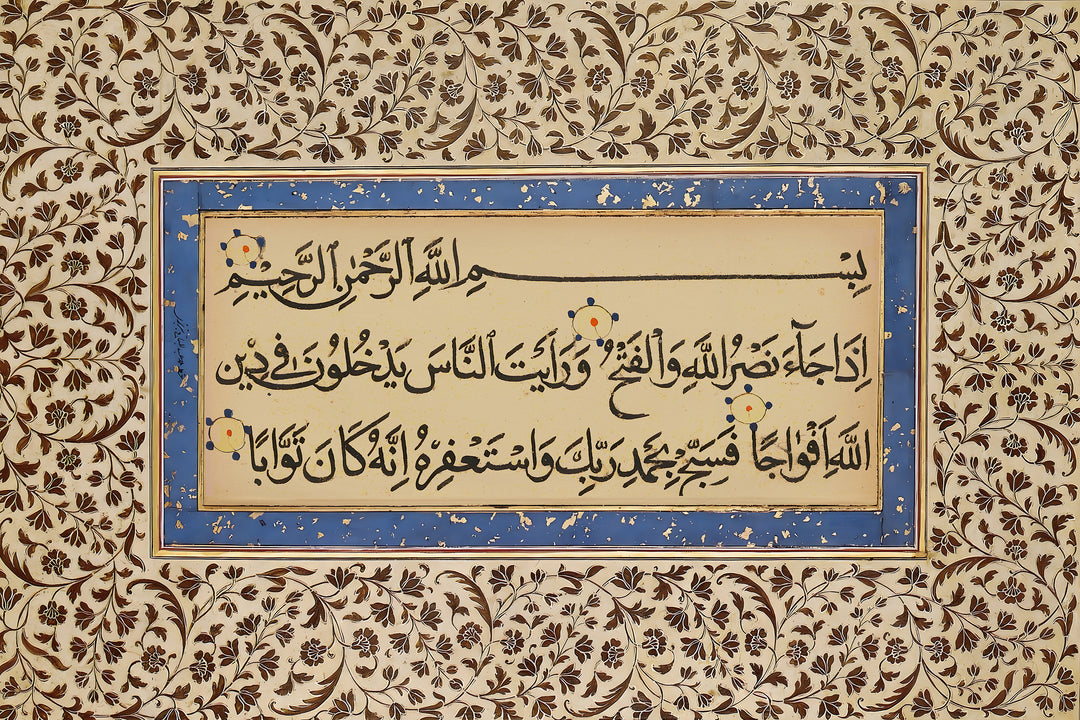 بِسْمِ اللَّهِ الرَّحْمٰنِ الرَّحِيْمِ
اِذَا جَآءَ نَصْرُ اللَّهِ وَالْفَتْحُ وَرَاَيْتَ النَّاسَ يَدْخُلُونَ فِي دِيْنِ
اللَّهِ اَفْوَاجًا فَسَبِّحْ بِحَمْدِ رَبِّكَ وَاسْتَغْفِرْهُ اِنَّهُ كَانَ تَوَّابًا